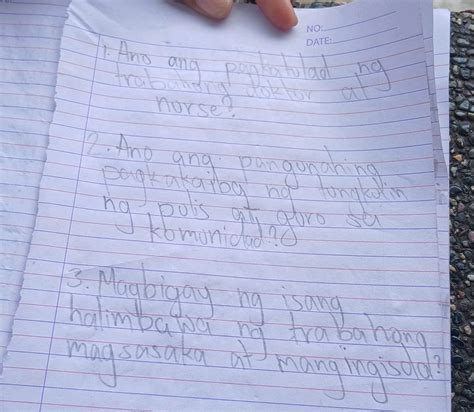 NO:
DATE:
1. Ano ang pagkatulad ng
trabahong doktor at
norse?
2. Ano ang pangunahing
pagkakaiba ng tungkolin
ng polis at goro sa
komunidad?
3. Magbigay ng isang
halimbawa ng trabahong
magsasaka at mangingisda?